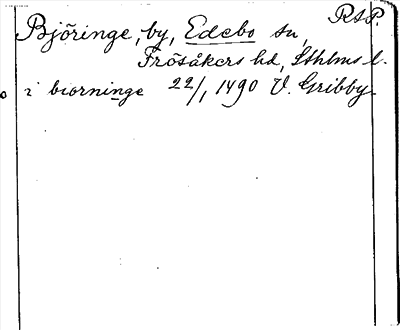 Björinge, by, Edebo sn, RAP.
Frösåkers hd, Sthlms l.
i biorninge 22/1 1490 V. Gribby